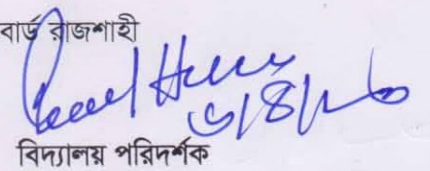 বার্ড রাজশাহী
৬/৪/২৬
বিদ্যালয় পরিদর্শক